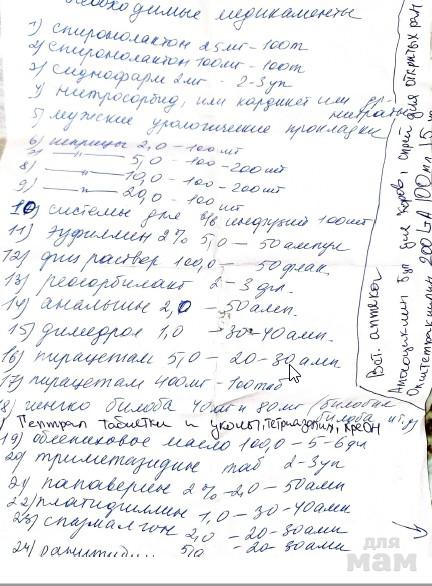 необходимые медикаменты
1) спиронолактон 25мг - 100т
2) спиронолактон 100мг - 100т
3) сиднофарм 2мг - 2-3 уп
4) нитросорбид, или кардикет или др. нитраты
5) мужские урологические прокладки
6) шприцы 2,0 - 100 шт
7) —"— 5,0 - 100 - 200 шт
8) —"— 10,0 - 100 - 200 шт
9) —"— 20,0 - 100 шт
10) системы для в/в инфузий 100шт
11) эуфиллин 2% 5,0 - 50 ампул
12) физ раствор 100,0 - 50 флак.
13) реосорбилакт 2 - 3 фл.
14) анальгин 2,0 - 50 амп.
15) димедрол 1,0 - 30-40 амп.
16) пирацетам 5,0 - 20-30 амп
17) пирацетам 400мг - 100таб
18) гинкго билоба 40мг и 80мг /билобил билоба и т.д)
Гептрал таблетки и уколы,
19) облепиховое масло 100,0 - 5-6 фл
20) триметазидин таб 2-3 уп
21) папаверин 2% - 2,0 - 50 амп
22) платифиллин 1,0 - 30-40 амп.
23) спазмалгон 2,0 - 20-30 амп
24) 5,0 - 20-30 амп.
Вет. аптека
для коров, спрей для открытых ран
200 LA 100 мл
для
мам